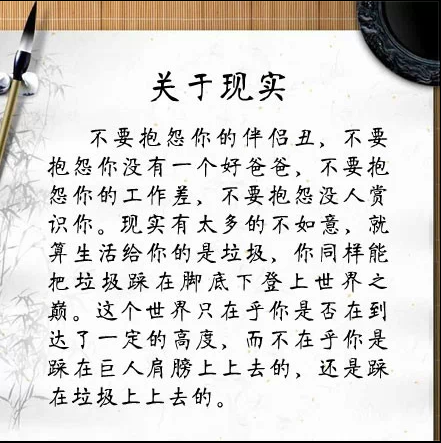 关于现实
不要抱怨你的伴侣丑，不要
抱怨你没有一个好爸爸，不要抱
怨你的工作差，不要抱怨没人赏
识你。现实有太多的不如意，就
算生活给你的是垃圾，你同样能
把垃圾踩在脚底下登上世界之
巅。这个世界只在乎你是否在到
达了一定的高度，而不在乎你是
踩在巨人肩膀上上去的，还是踩
在垃圾上上去的。